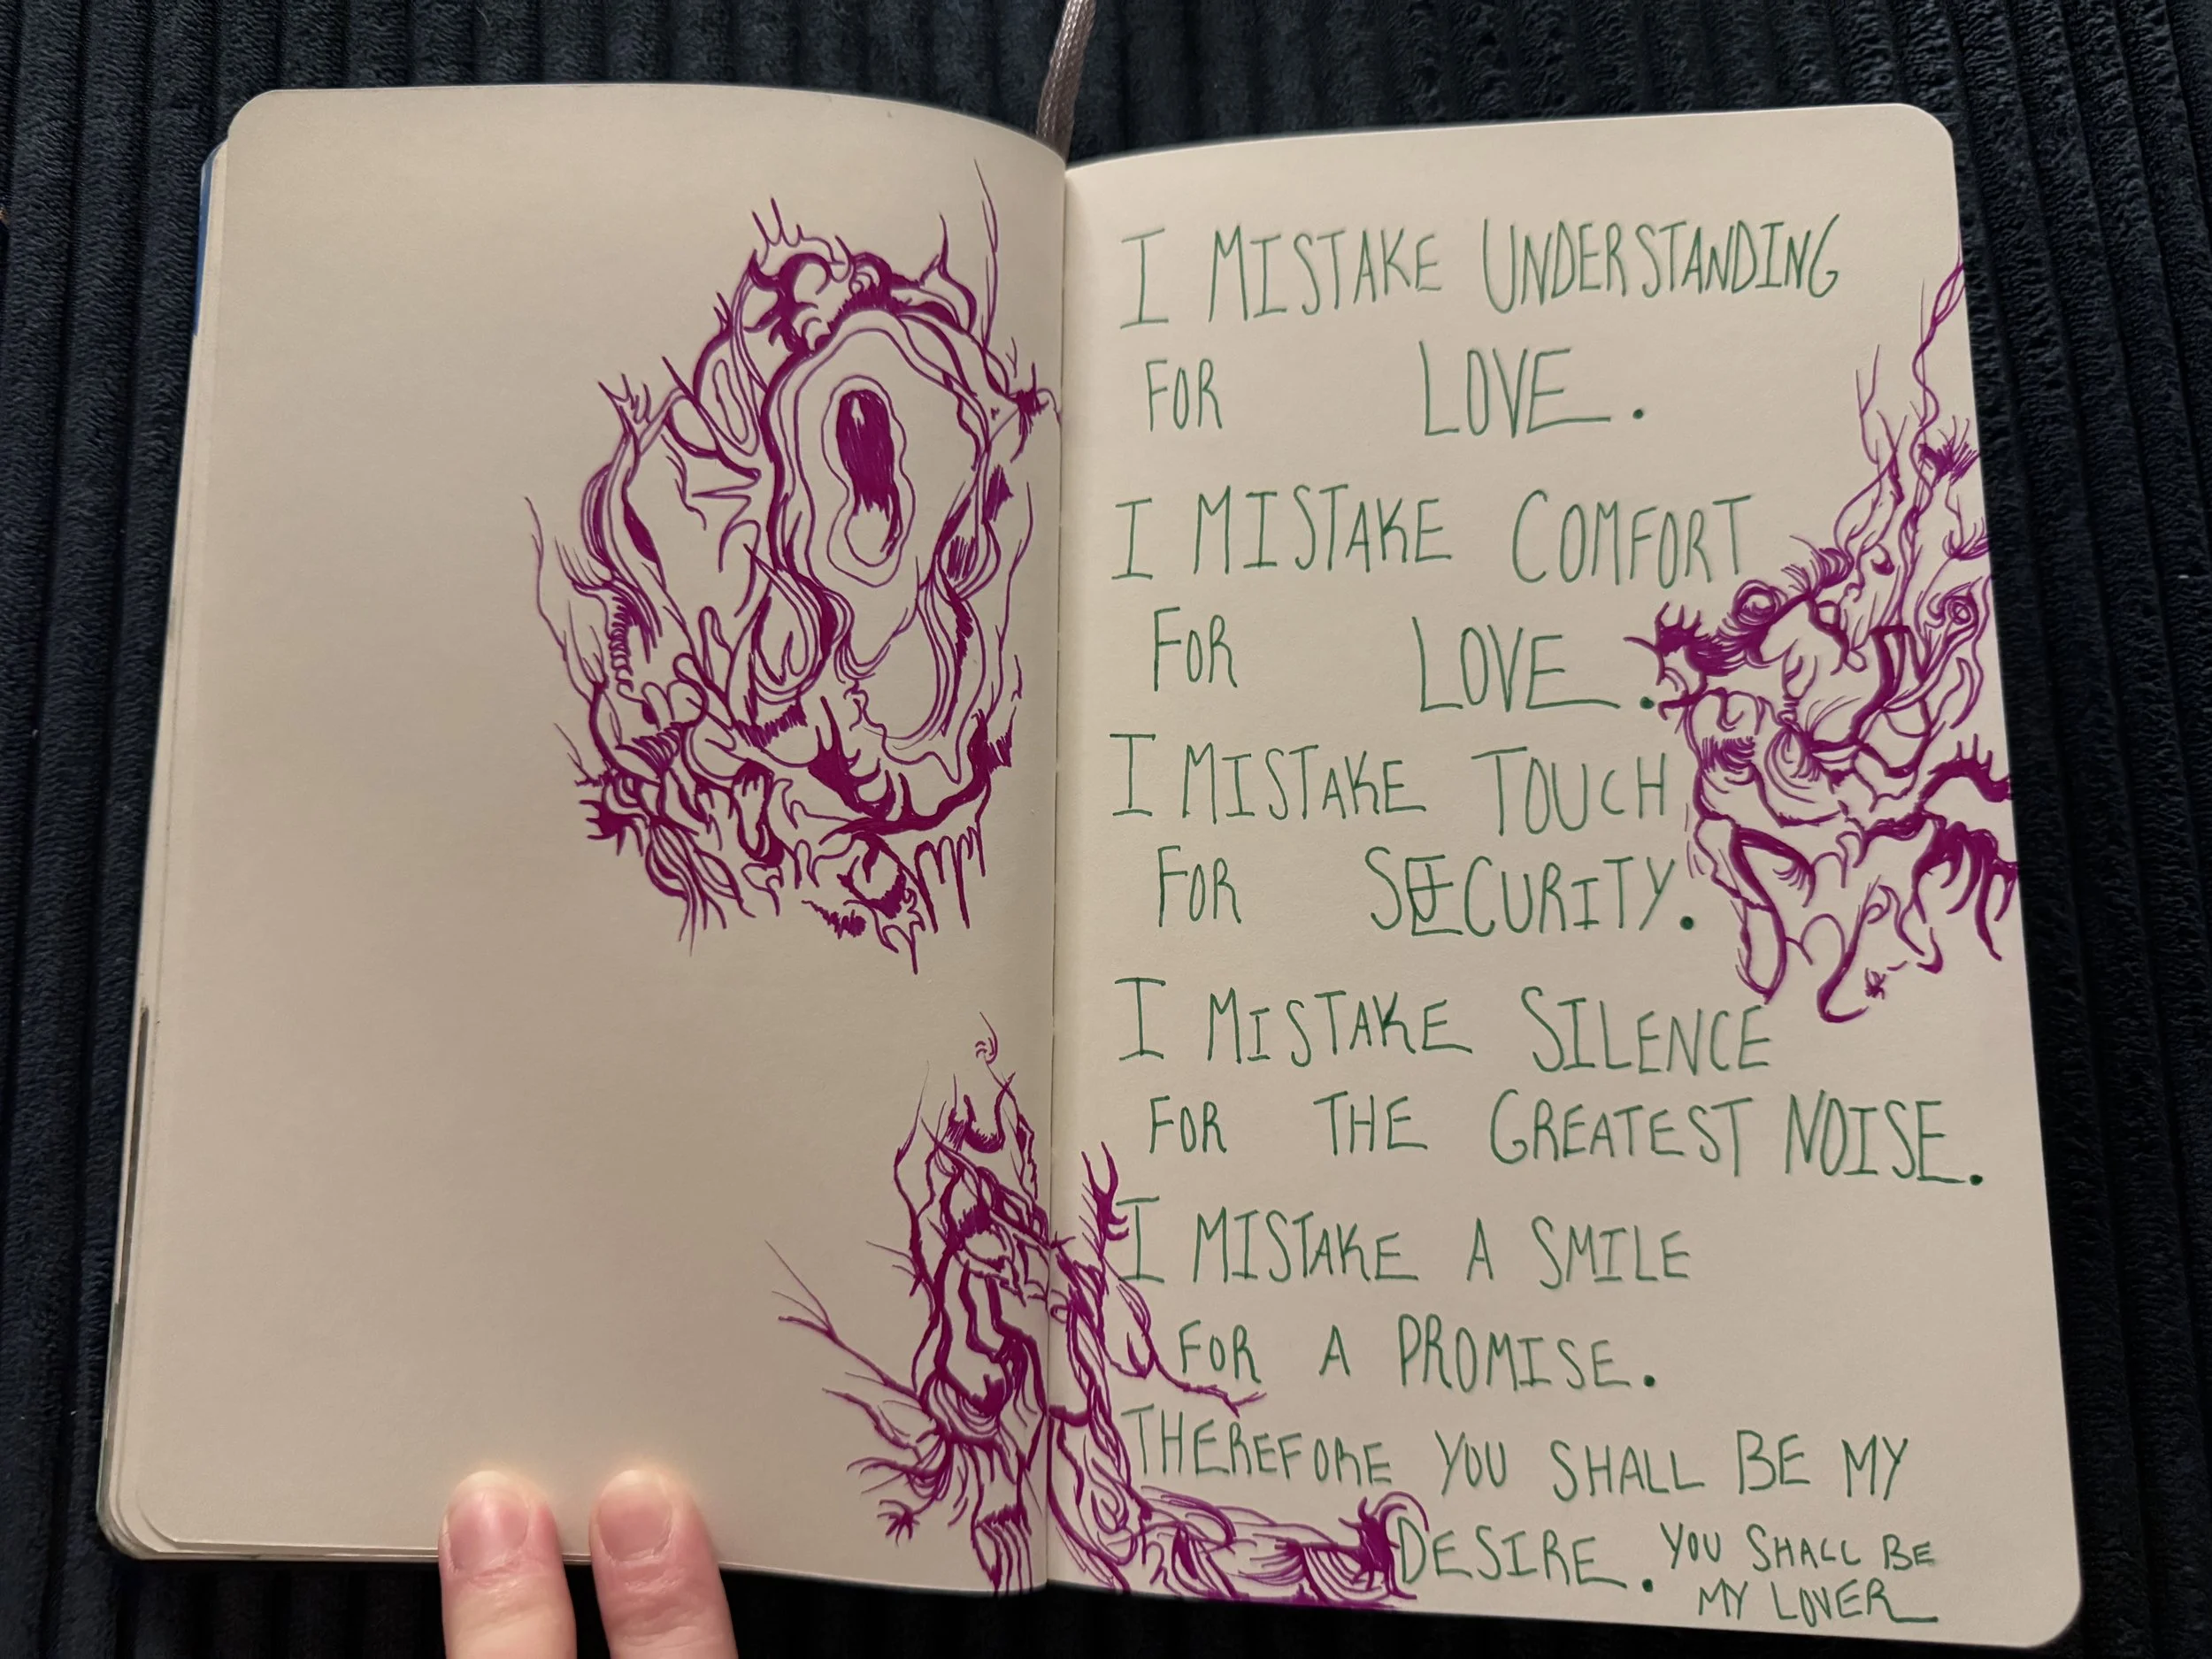 I MISTAKE UNDERSTANDING
FOR LOVE.
I MISTAKE COMFORT
FOR LOVE.
I MISTAKE TOUCH
FOR SECURITY.
I MISTAKE SILENCE
FOR THE GREATEST NOISE.
I MISTAKE A SMILE
FOR A PROMISE.
THEREFORE YOU SHALL BE MY
DESIRE. YOU SHALL BE
MY LOVER